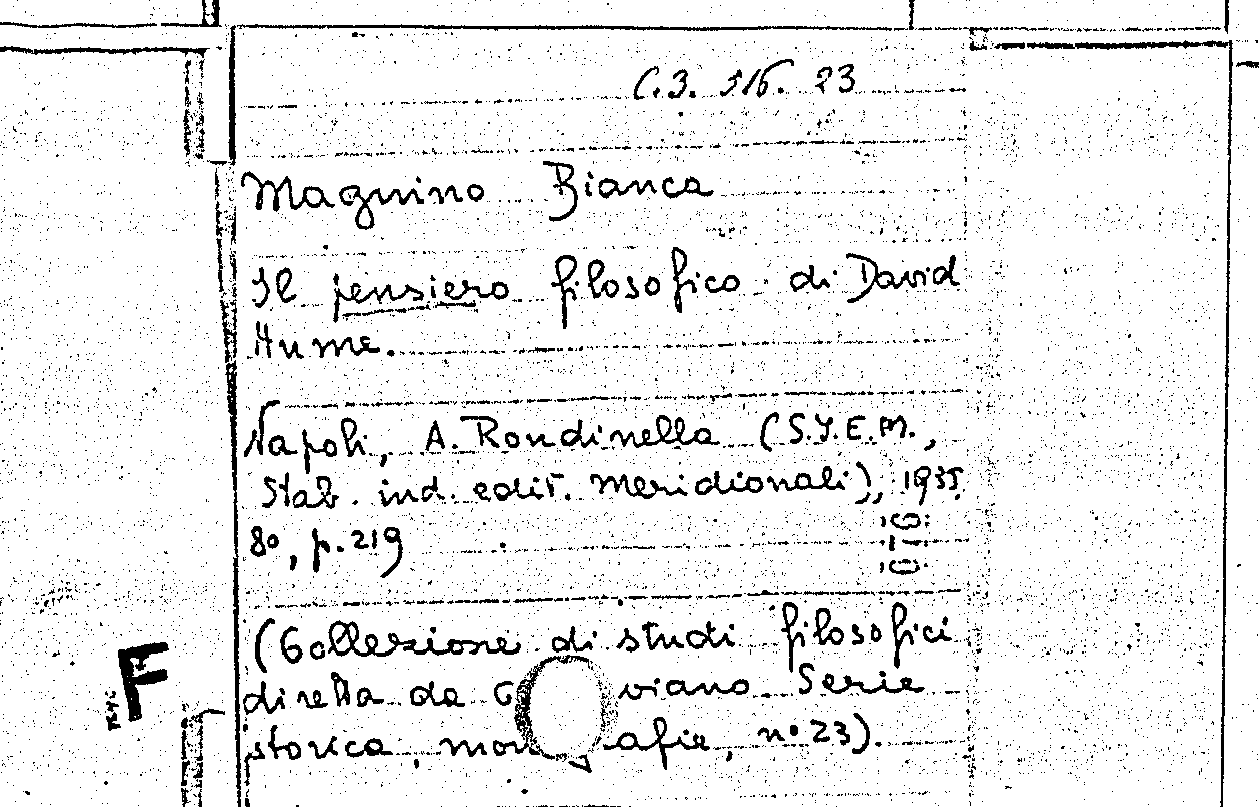 C.3. 516. 23
Magnino Bianca
Il pensiero filosofico di David
Hume.
Napoli, A. Rondinella (S.Y.E.M.,
Stab. ind. edit. Meridionali), 1935.
8º, p. 219
(Collezione di studi filosofici
diretta da Serie
storica, nº 23).
F